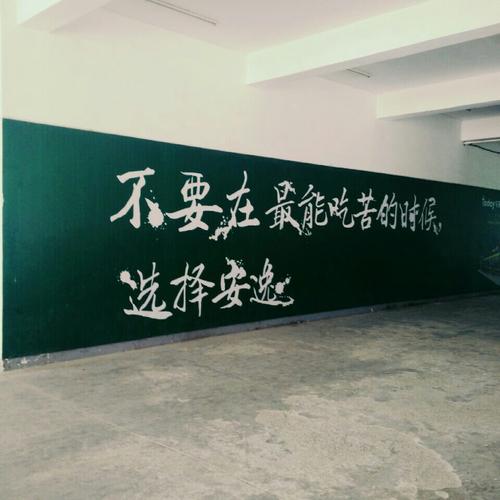 不要在最能吃苦的时候,
选择安逸。
Today